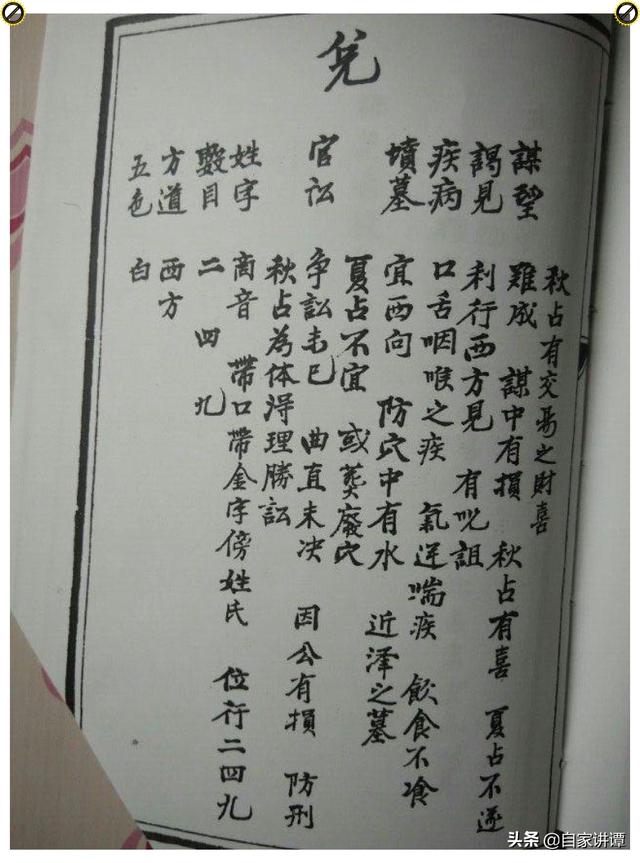 兌
秋占有交易之財喜
謀望 難成 謀中有損 秋占有喜 夏占不遂
謁見 利行西方見 有咒詛
疾病 口舌咽喉之疾 氣逆喘疾 飲食不飡
墳墓 宜西向 防穴中有水 近泽之墓
夏占不宜 或葬廢穴
官訟 争訟未已 曲直未决 因公有損 防刑
秋占為体得理勝訟
姓字 商音 帶口帶金字傍姓氏 位行二四九
數目 二 四 九
方道 西方
五色 白
头条 @自家讲谭